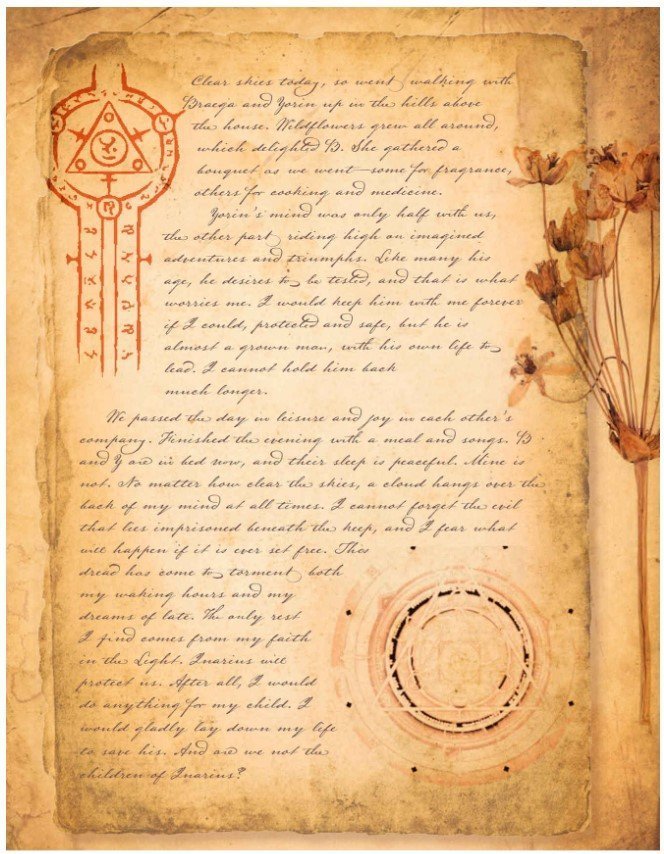 Clear skies today, so went walking with
Braega and Yorin up in the hills above
the house. Wildflowers grew all around,
which delighted B. She gathered a
bouquet as we went—some for fragrance,
others for cooking and medicine.
Yorin's mind was only half with us,
the other part riding high on imagined
adventures and triumphs. Like many his
age, he desires to be tested, and that is what
worries me. I would keep him with me forever
if I could, protected and safe, but he is
almost a grown man, with his own life to
lead. I cannot hold him back
much longer.
We passed the day in leisure and joy in each other's
company. Finished the evening with a meal and songs. B
and Y are in bed now, and their sleep is peaceful. Mine is
not. No matter how clear the skies, a cloud hangs over the
back of my mind at all times. I cannot forget the evil
that lies imprisoned beneath the keep, and I fear what
will happen if it is ever set free. This
dread has come to torment both
my waking hours and my
dreams of late. The only rest
I find comes from my faith
in the Light. Inarius will
protect us. After all, I would
do anything for my child. I
would gladly lay down my life
to save his. And are we not the
children of Inarius?